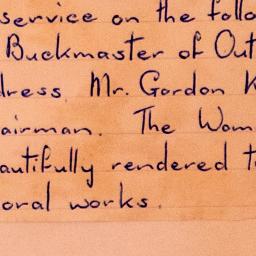 service on the follo
Buckmaster of Out
dress Mr. Gordon K
airman. The Wom
autifully rendered t
oral works.